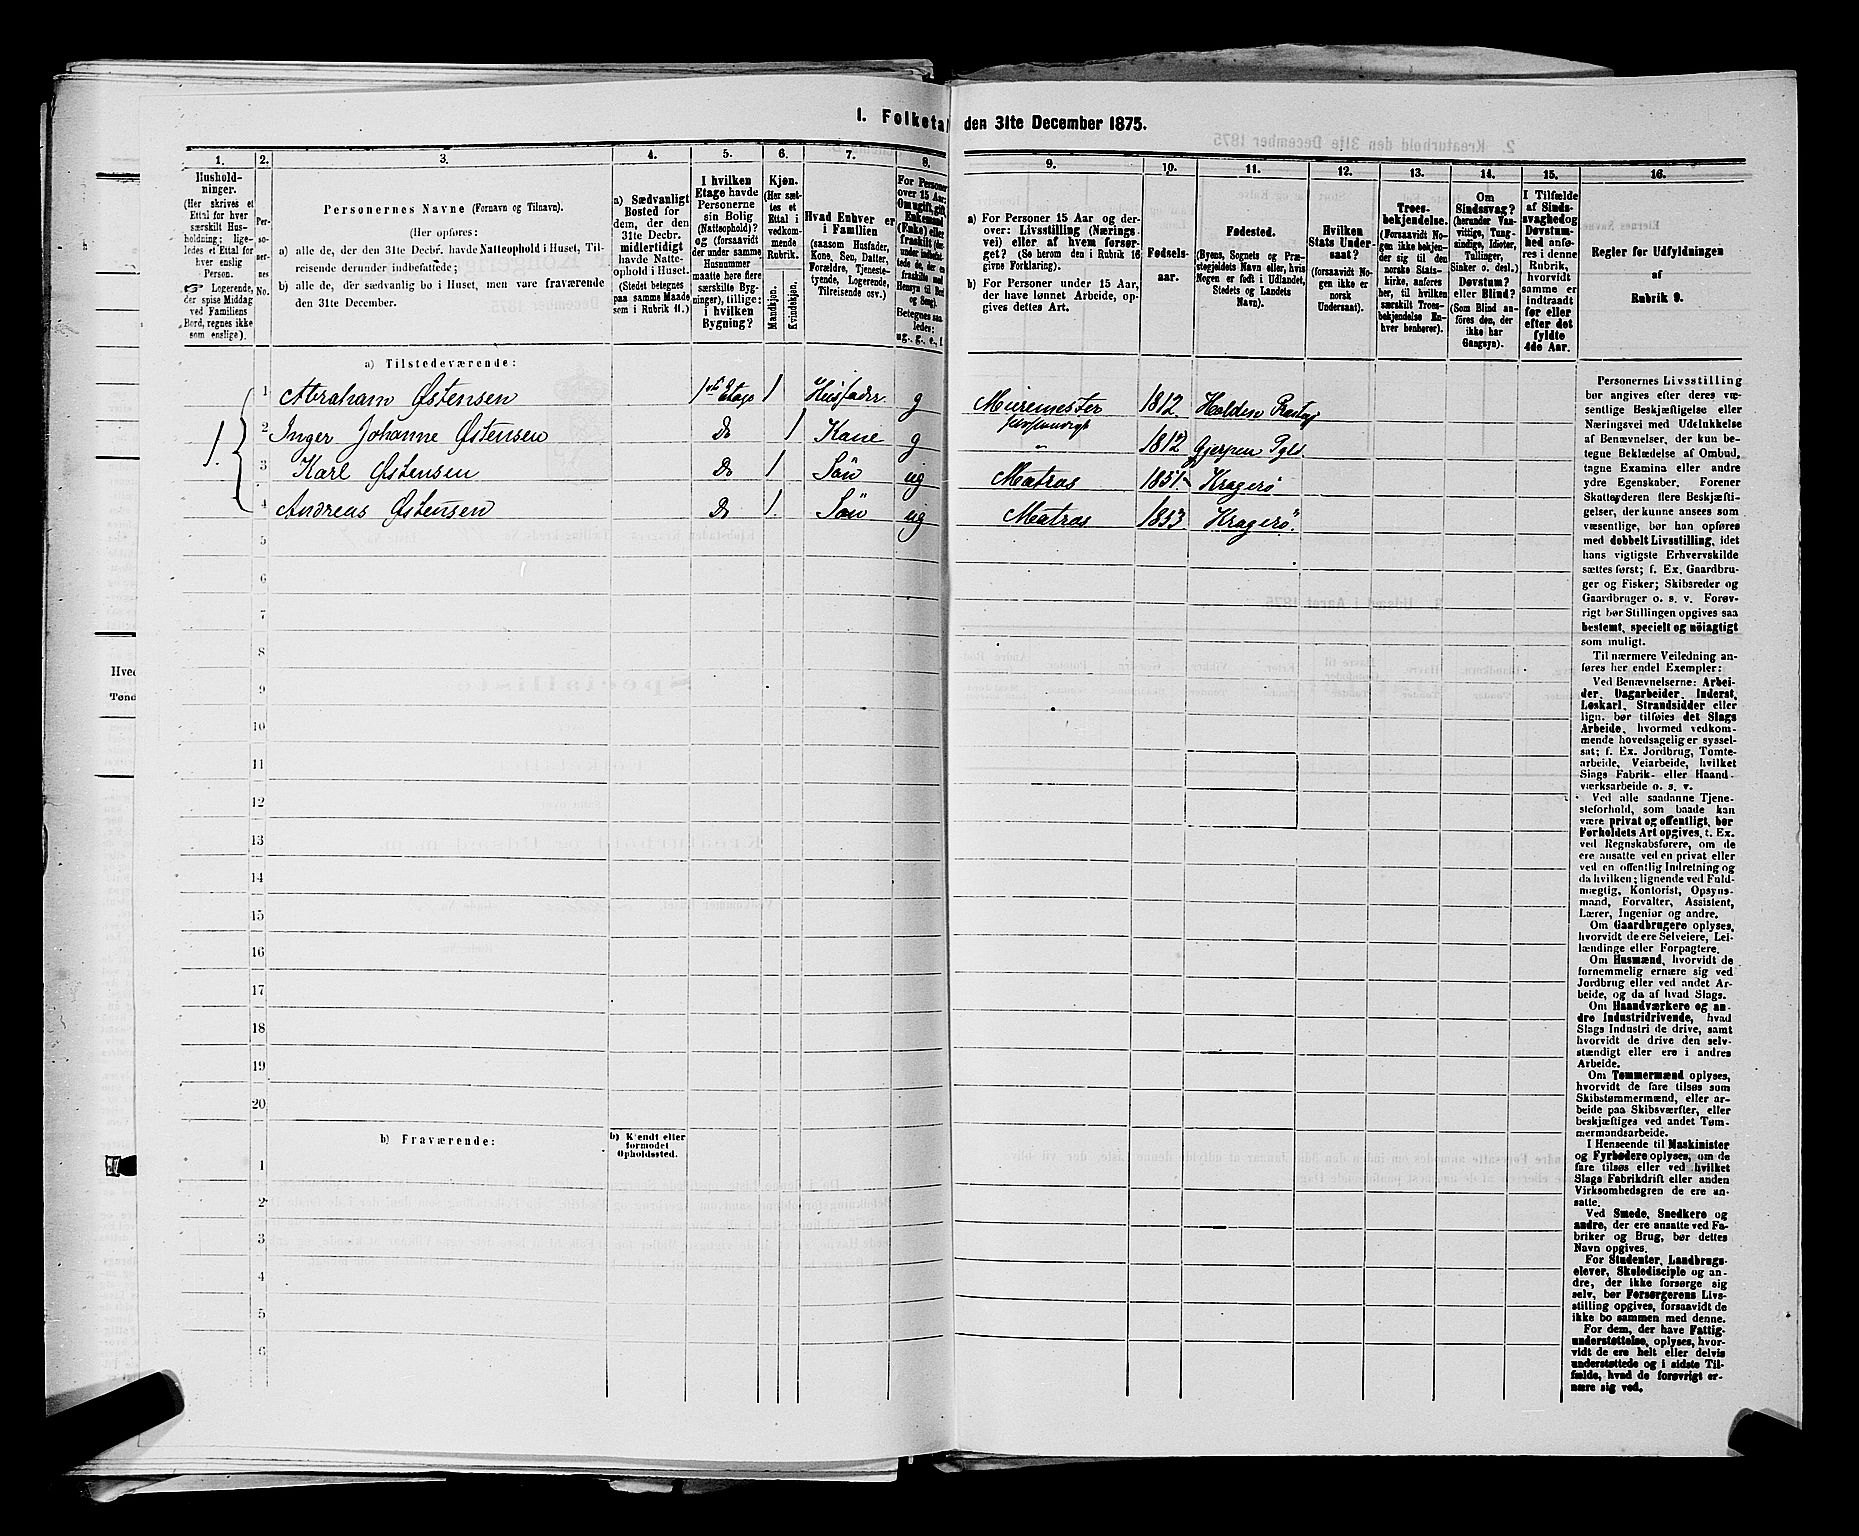 1. Folketal den 31te December 1875.
1. 2. 3. 4. 5. 6. 7. 8. 9. 10. 11. 12. 13. 14. 15. 16.
Hushold-
ninger.
(Her skrives et
Ettal for hver
særskilt Hus-
holdning; lige-
ledes et Ettal for
hver enslig
Person.
☞ Logerende,
der spise Middag
ved Familiens
Bord, regnes ikke
som enslige).
Per-
so-
ner-
nes
No.
Personernes Navne (Fornavn og Tilnavn).
(Her opføres:
a) alle de, der den 31te Decbr. havde Natteophold i Huset, Til-
reisende derunder indbefattede;
b) alle de, der sædvanlig bo i Huset, men vare fraværende
den 31te December.
a) Sædvanligt
Bosted for
dem, der den
31te Decbr.
midlertidigt
havde Natte-
ophold i Huset.
(Stedet betegnes
paa samme Maade
som i Rubrik 11.)
I hvilken
Etage havde
Personerne
sin Bolig
(Natteophold)?
og (forsaavidt
der under samme
Husnummer
maatte høre flere
særskilte Byg-
ninger), tillige:
i hvilken
Bygning?
Kjøn.
(Her sæt-
tes et
Ettal i
vedkom-
mende
Rubrik.
Mandkjøn.
Kvindekjøn.
Hvad Enhver er
i Familien
(saasom Husfader,
Kone, Søn, Datter,
Forældre, Tjeneste-
tyende, Logerende,
Tilreisende osv.)
For Personer
over 15 Aar:
Om ugift, gift,
Enkemand
(Enke) eller
fraskilt (der-
under indbefat-
tede de, der ere
fraskilte med
Hensyn til Bord
og Seng).
Betegnes saa-
ledes:
ug., g., e., f.
a) For Personer 15 Aar og der-
over: Livsstilling (Nærings-
vei) eller af hvem forsør-
get? (Se herom den i Rubrik 16
givne Forklaring).
b) For Personer under 15 Aar,
der have lønnet Arbeide, op-
gives dettes Art.
Fødsels-
aar.
Fødested.
(Byens, Sognets og Præ-
stegjeldets Navn eller, hvis
Nogen er født i Udlandet,
Stedets og Landets
Navn).
Hvilken
Stats Under-
saat?
(forsaavidt No-
gen ikke er
norsk
Undersaat).
Troes-
bekjendelse.
(Forsaavidt No-
gen ikke bekjen-
der sig til den
norske Stats-
kirke, anføres
her, til hvilken
særskilt Troes-
bekjendelse En-
hver henhører).
Om
Sindssvag?
(herunder Van-
vittige, Tung-
sindige, Idioter,
Tullinger,
Sinker o. desl.)
Døvstum?
eller Blind?
(Som Blind an-
føres den, der
ikke har
Gangsyn).
I Tilfælde
af Sinds-
svaghed og
Døvstum-
hed anfø-
res i denne
Rubrik,
hvorvidt
samme er
indtraadt
før eller
efter det
fyldte
4de Aar.
Regler for Udfyldningen
af
Rubrik 9.
a) Tilstedeværende:
1. 1 Abraham Østensen 1ste Etage 1 Husfader g Muremester selvstændigt 1812 Holden Prstgj
2 Inger Johanne Østensen Do 1 Kone g " 1812 Gjerpen Pgld
3 Karl Østensen Do 1 Søn ug Matros 1851 Kragerø
4 Andreas Østensen Do 1. Søn ug Matros 1853 Kragerø.
5
6
7
8
9
10
11
12
13
14
15
16
17
18
19
20
b) Fraværende:
b) Kjendt eller
formodet
Opholdssted.
1
2
3
4
5
6
Personernes Livsstilling
bør angives efter deres væ-
sentlige Beskjæftigelse eller
Næringsvei med Udelukkelse
af Benævnelser, der kun be-
tegne Beklædelse af Ombud,
tagne Examina eller andre
ydre Egenskaber. Forener
Skatteyderen flere Beskjæfti-
gelser, der kunne ansees som
væsentlige, bør han opføres
med dobbelt Livsstilling, idet
hans vigtigste Erhvervskilde
sættes først; f. Ex. Gaardbru-
ger og Fisker; Skibsreder og
Gaardbruger o. s. v. Forøv-
rigt bør Stillingen opgives saa
bestemt, specielt og nøiagtigt
som muligt.
Til nærmere Veiledning an-
føres her endel Exempler:
Ved Benævnelserne: Arbei-
der, Dagarbeider, Inderst,
Løskarl, Strandsidder eller
lign. bør tilføies det Slags
Arbeide, hvormed vedkom-
mende hovedsagelig er syssel-
sat; f. Ex. Jordbrug, Tomte-
arbeide, Veiarbeide, hvilket
Slags Fabrik- eller Haand-
værksarbeide o. s. v.
Ved alle saadanne Tjene-
steforhold, som baade kan
være privat og offentligt, bør
Forholdets Art opgives, t. Ex.
ved Regnskabsførere, om de
ere ansatte ved en privat eller
ved en offentlig Indretning og
da hvilken; lignende ved Fuld-
mægtig, Kontorist, Opsyns-
mand, Forvalter, Assistent,
Lærer, Ingeniør og andre.
Om Gaardbrugere oplyses,
hvorvidt de ere Selveiere, Lei-
lændinge eller Forpagtere.
Om Husmænd, hvorvidt de
fornemmelig ernære sig ved
Jordbrug eller ved andet Ar-
beide, og da af hvad Slags.
Om Haandværkere og an-
dre Industridrivende, hvad
Slags Industri de drive, samt
hvorvidt de drive den selv-
stændigt eller ere i andres
Arbeide.
Om Tømmermænd oplyses,
hvorvidt de fare tilsøs som
Skibstømmermænd, eller ar-
beide paa Skibsværfter, eller
beskjæftiges ved andet Tøm-
mermandsarbeide.
I Henseende til Maskinister
og Fyrbødere oplyses, om de
fare tilsøs eller ved hvilket
Slags Fabrikdrift eller anden
Virksomhedsgren de ere an-
satte.
Ved Smede, Snedkere og
andre, der ere ansatte ved Fa-
briker og Brug, bør dettes
Navn opgives.
For Studenter, Landbrugs-
elever, Skoledisciple og an-
dre, der ikke forsørge sig
selv, bør Forsørgerens Livs-
stilling opgives, forsaavidt de
ikke bo sammen med denne.
For dem, der have Fattig-
understøttelse, oplyses, hvor-
vidt de ere helt eller delvis
understøttede og i sidste Til-
fælde, hvad de forøvrigt er-
nære sig ved.